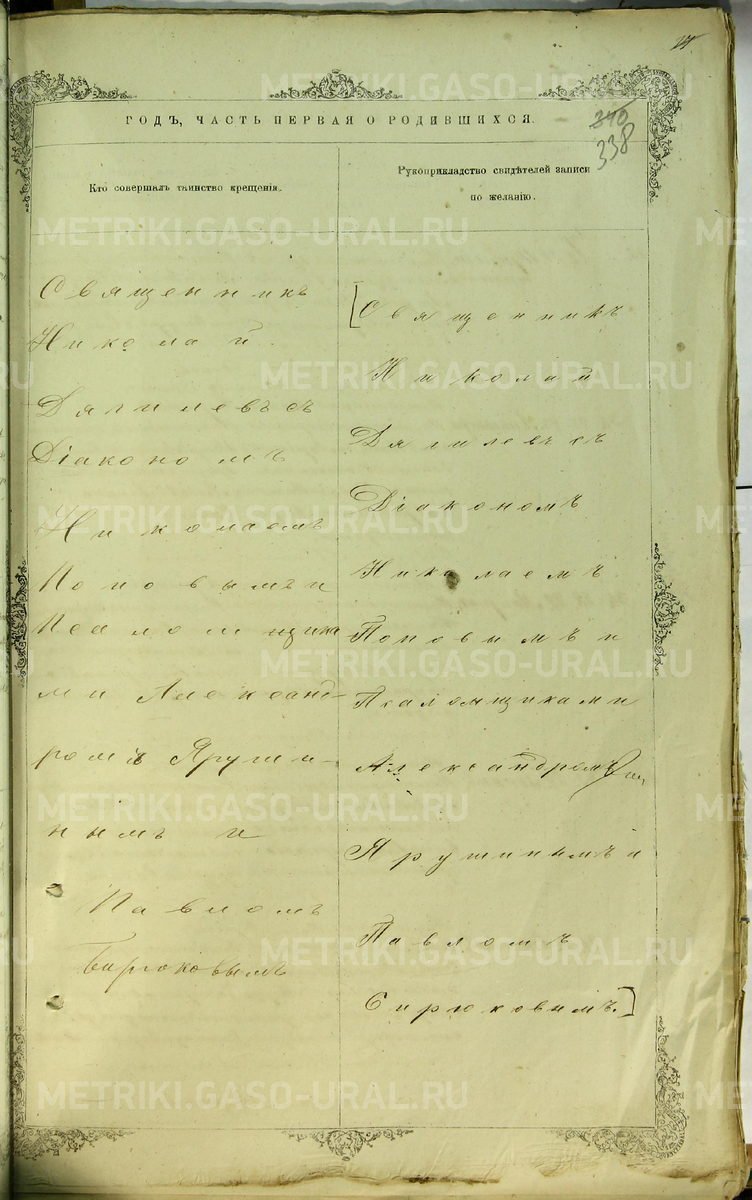 17.
ГОДЪ, ЧАСТЬ ПЕРВАЯ О РОДИВШИХСЯ.
340
338
Кто совершалъ таинство крещенія.
Священникъ
Николай
Дягилевъ съ
Діакономъ
Николаемъ
Поповымъ и
Псаломщика
ми Александ-
ромъ Яруши-
нымъ и
Павломъ
Бирюковымъ
Рукоприкладство свидѣтелей записи
по желанію.
[Священникъ
Николай
Дягилевъ съ
Діакономъ
Николаемъ
Поповымъ и
Псаломщиками
Александромъ
Ярушинымъ и
Павломъ
Бирюковымъ.]
METRIKI.GASO-URAL.RU